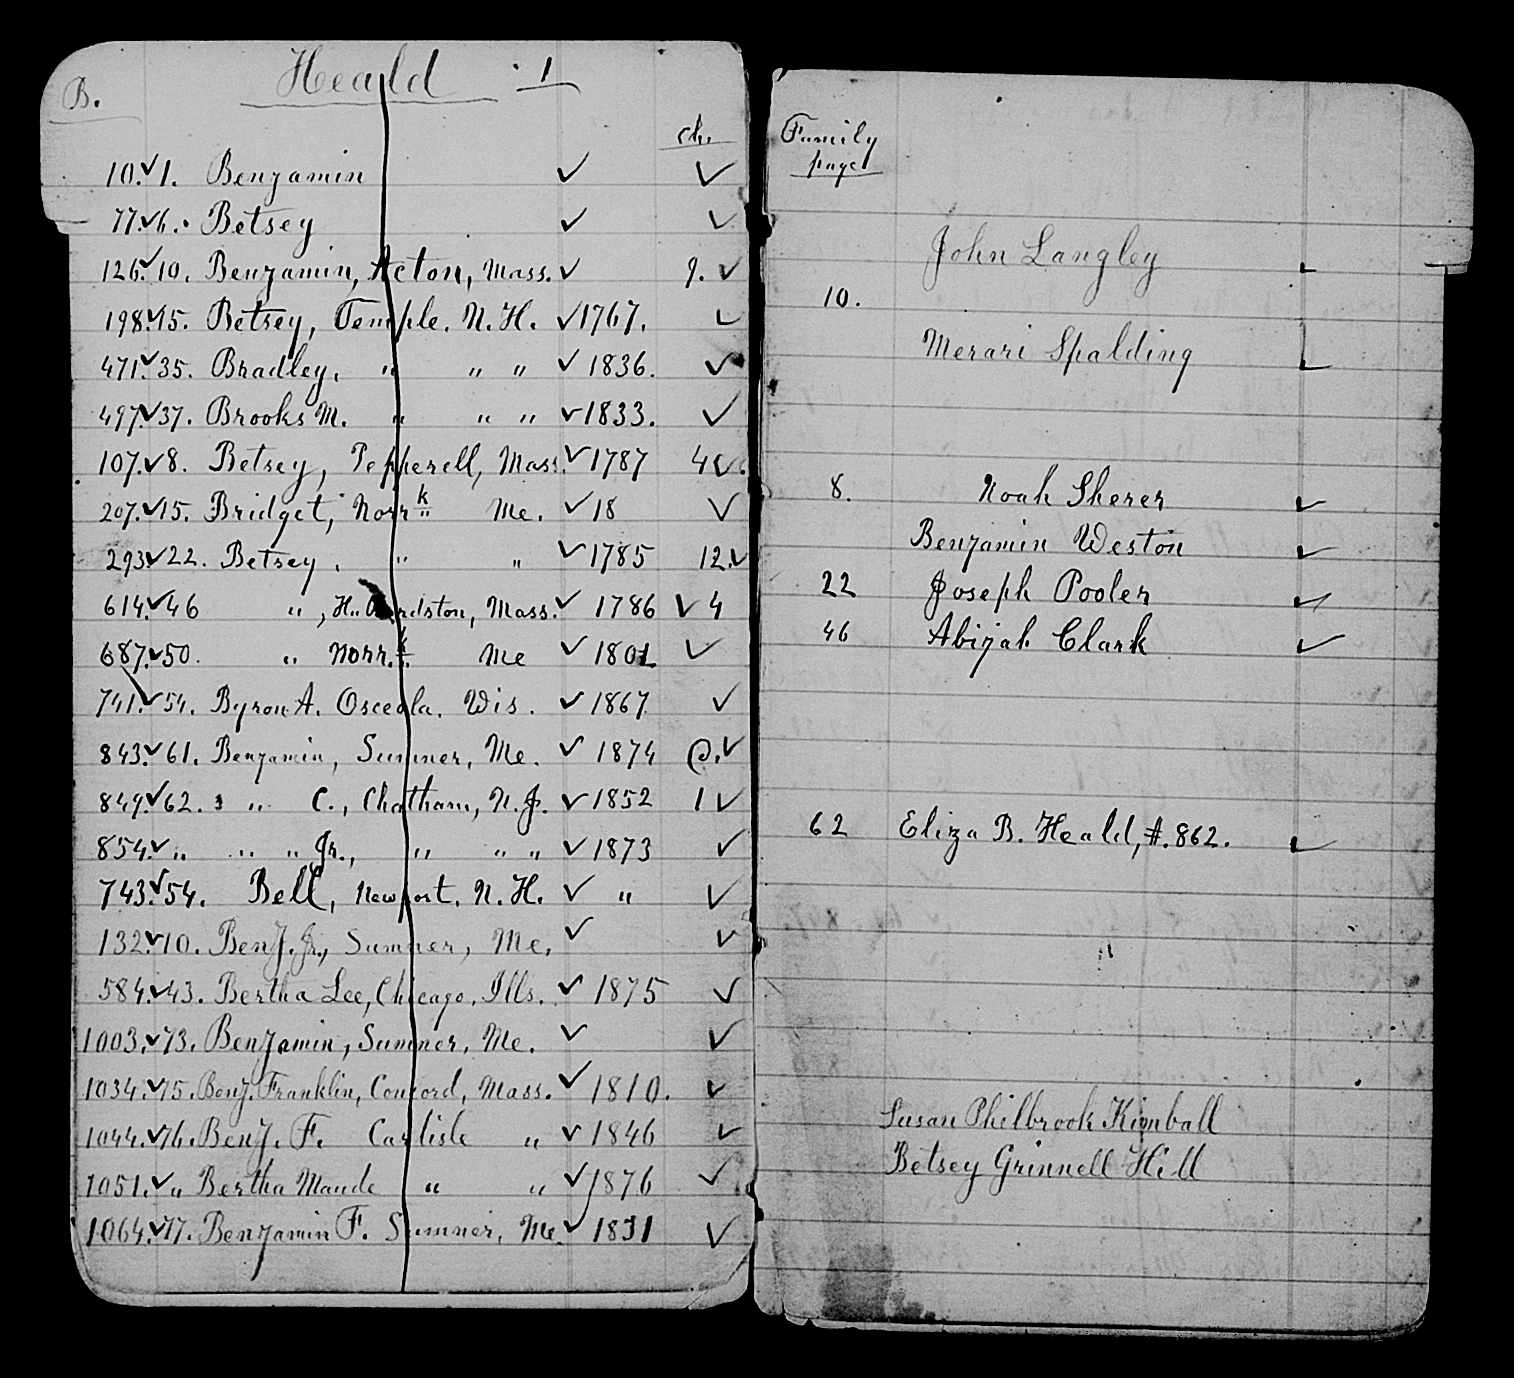 B. Heald 1
ch.
10.✓1. Benjamin ✓ ✓
77.✓6. Betsey ✓ ✓
126.✓10. Benjamin, Acton, Mass. ✓ 9. ✓
198.✓15. Betsey, Temple. N. H. ✓1767. ✓
471.✓35. Bradley. " " " ✓ 1836. ✓
497.✓37. Brooks M. " " " ✓1833. ✓
107.✓8. Betsey, Pepperell, Mass. ✓1787 4✓.
207.✓15. Bridget, Norr k " Me. ✓18 ✓
293.✓22. Betsey. " " ✓1785 12.✓
614.✓46 " , Mass. ✓ 1786 ✓ 4
687.✓50. " Norr. k Me ✓ 1801 ✓
741.✓54. Byron A. Osceola. Wis. ✓ 1867 ✓
843.✓61. Benjamin, Sumner, Me. ✓ 1874 ✓
849.✓62. " C., Chatham, N. J. ✓1852 1 ✓
854.✓ " " " Jr., " " " ✓1873 ✓
743.✓54. Bell, Newport. N. H. ✓ " ✓
132.✓10. Benj. Jr., Sumner, Me. ✓ ✓
584.✓43. Bertha Lee, Chicago, Ills. ✓ 1875 ✓
1003.✓73. Benjamin, Sumner, Me. ✓ ✓
1034.✓75. Benj. Franklin, Concord, Mass. ✓ 1810. ✓
1044.✓76. Benj. F. Carlisle " ✓ 1846 ✓
1051.✓ " Bertha Maude " " ✓1876 ✓
1064.✓77. Benjamin F. Sumner, Me. ✓ 1831 ✓
Family
page
John Langley ✓
10.
Merari Spalding ✓
8. Noah Sherer ✓
Benjamin Weston ✓
22 Joseph Pooler ✓
46 Abijah Clark ✓
62 Eliza B. Heald, #.862. ✓
"
Susan Philbrook Kimball
Betsey Grinnell Hill